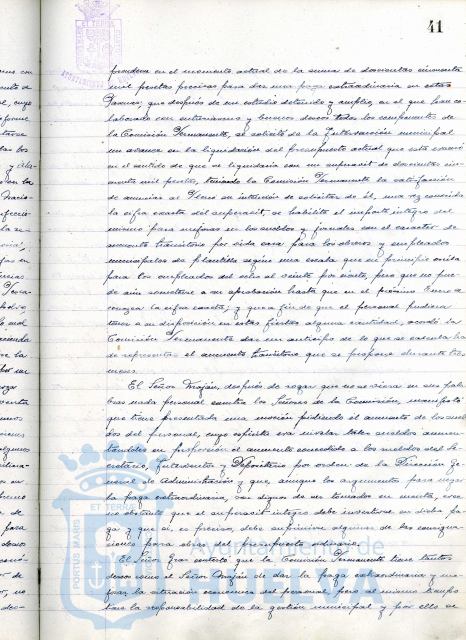 41
pondera en el momento actual de la suma de doscientas cincuenta
mil pesetas precisas para dar una paga extraordinaria en estas
Pascuas; que después de un estudio detenido y amplio, en el que han co-
laborado con entusiasmo y buenos deseos todos los componentes de
la Comisión Permanente, se solicitó de la Intervención municipal
un avance en la liquidación del presupuesto actual que está
en el sentido de que se liquidaría con un superavit de doscientas cin-
cuenta mil pesetas, teniendo la Comisión Permanente la satisfacción
de anunciar al Pleno su intención de solicitar de él, una vez conocida
la cifra exacta del superavit, se habilite el importe íntegro del
mismo para mejoras en los sueldos y jornales con el caracter de
aumento transitorio por vida cara para los obreros y empleados
municipales de plantilla según una escala que en principio oscila
para los empleados del ocho al veinte por ciento, pero que no pue-
de aún someterse a su aprobación hasta que en el próximo Enero se
conozca la cifra exacta, y que a fin de que el personal pudiera
tener a su disposición en estas fiestas alguna cantidad, acordó la
Comisión Permanente dar un anticipo de lo que se calcula ha
de representar el aumento transitorio que se propone durante tres
meses.
El Señor Moján, después de rogar que no se viera en sus pala-
bras nada personal contra los Señores de la Comisión, manifestó
que tiene presentada una moción pidiendo el aumento de los suel-
dos del personal, cuyo espíritu era nivelar todos aquellos aumen-
tándolos en proporción al aumento concedido a los sueldos del Se-
cretario, Interventor y Depositario por orden de la Dirección Ge-
neral de Administración y que, aunque los argumentos para negar
la paga extraordinaria, son dignos de ser tomados en cuenta, cree
no obstante que el superavit íntegro debe invertirse en dicha pa-
ga y que si es preciso, debe suprimirse alguna de las consigna-
ciones para obras del presupuesto ordinario.
El Señor Gras contesta que la Comisión Permanente tiene tantos
deseos como el Señor Moján de dar la paga extraordinaria y me-
jorar la situación económica del personal pero al mismo tiempo
tiene la responsabilidad de la gestión municipal y por ello se
Ayuntamiento de
HUELVA
PORTUS MARIS
ET TERRÆ